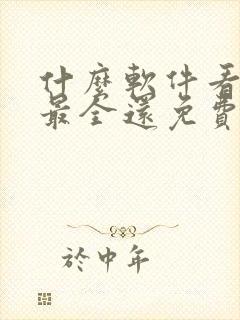 什麼軟件看
最全還免費
於中年